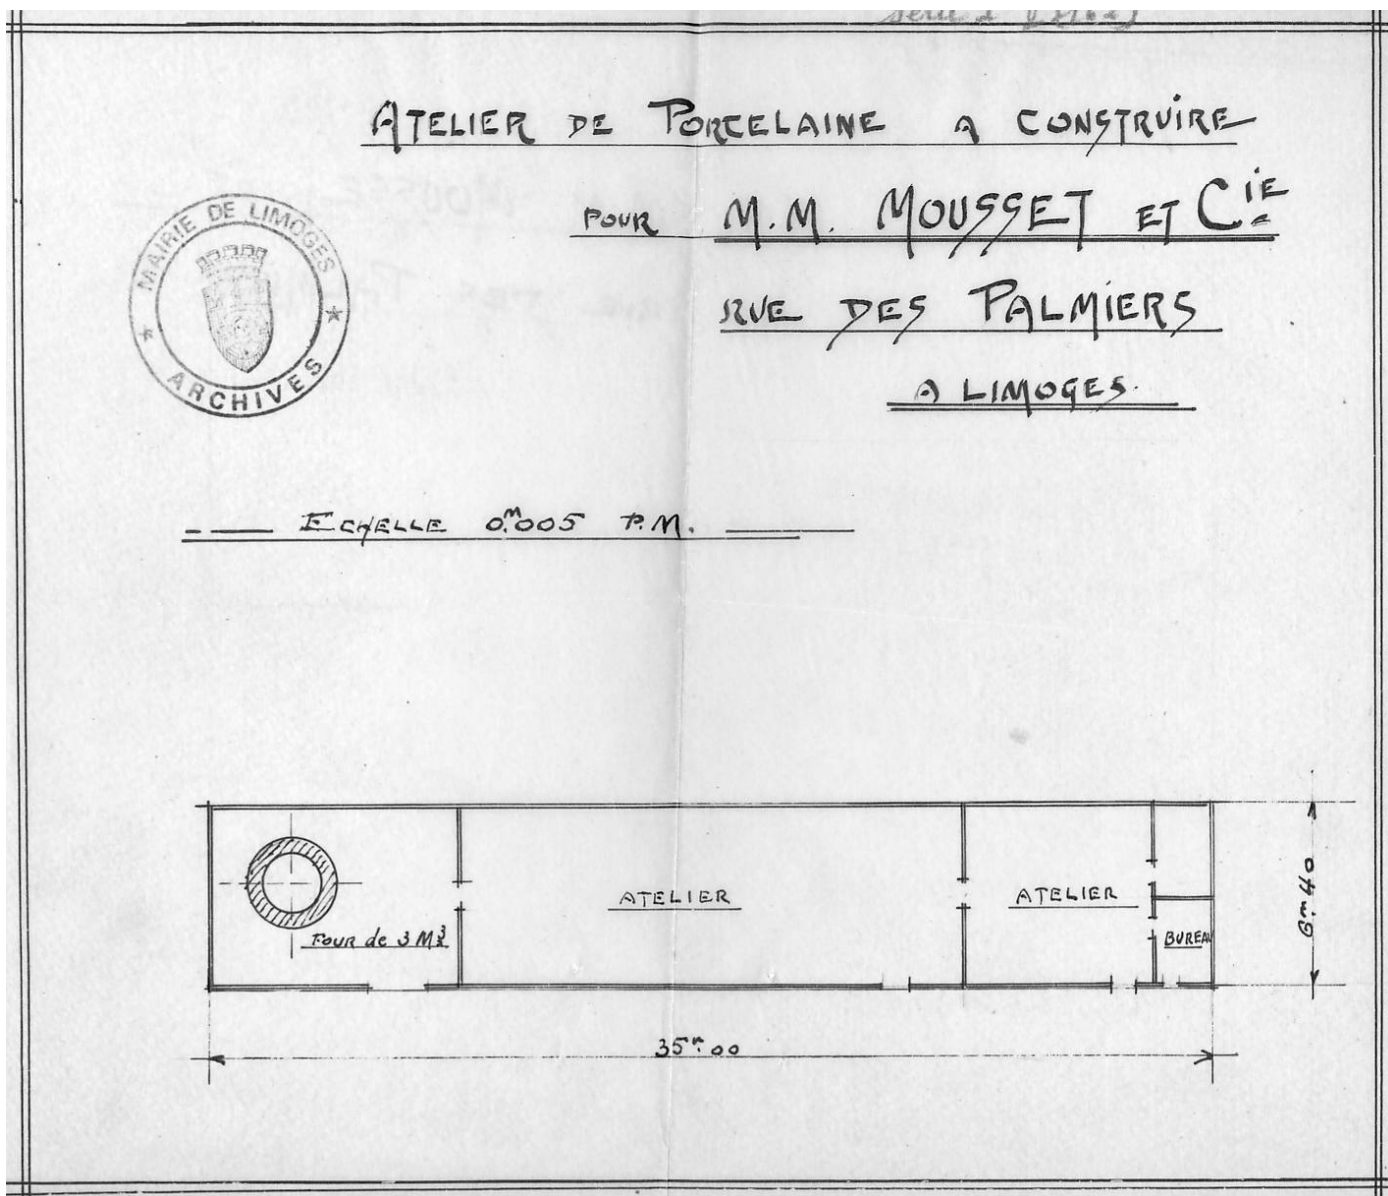 ATELIER DE PORCELAINE A CONSTRUIRE
POUR M.M. MOUSSET ET Cie
RUE DES PALMIERS
A LIMOGES.
MAIRIE DE LIMOGES
ARCHIVES
ECHELLE 0m.005 P.M.
ATELIER
ATELIER
FOUR de 3 M3
BUREAU
6m.40
35m.00